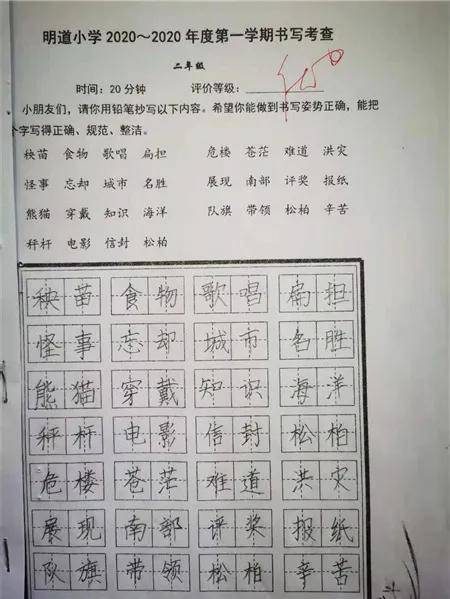 明道小学 2020～2020 年度第一学期书写考查
二年级
时间：20分钟 评价等级：
小朋友们，请你用铅笔抄写以下内容。希望你能做到书写姿势正确，能把
字写得正确、规范、整洁。
秧苗 食物 歌唱 扁担 危楼 苍茫 难道 洪灾
怪事 忘却 城市 名胜 展现 南部 评奖 报纸
熊猫 穿戴 知识 海洋 队旗 带领 松柏 辛苦
秤杆 电影 信封 松柏
秧苗 食物 歌唱 扁担
怪事 忘却 城市 名胜
熊猫 穿戴 知识 海洋
秤杆 电影 信封 松柏
危楼 苍茫 难道 洪灾
展现 南部 评奖 报纸
队旗 带领 松柏 辛苦